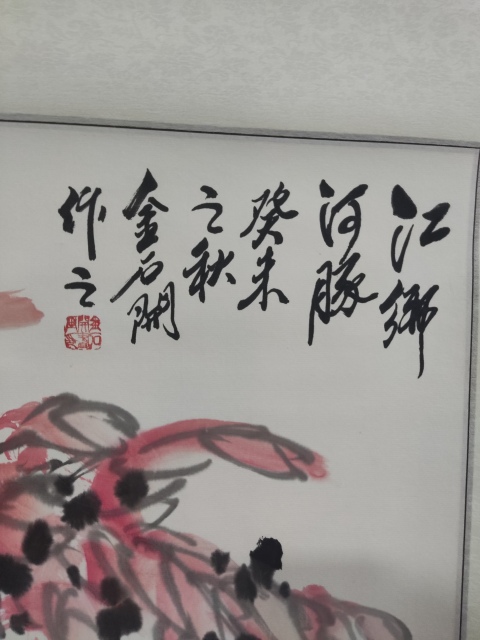 江鄉
河豚
癸未
之秋
金石開
作之